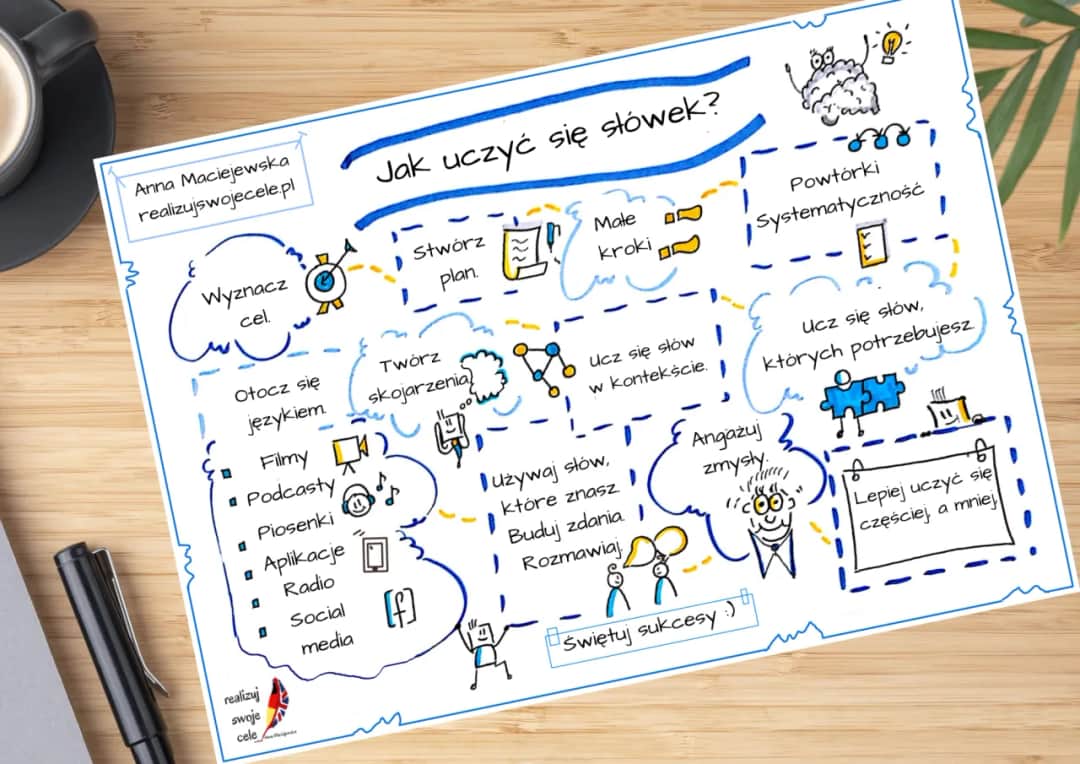 Anna Maciejewska
realizujswojecele.pl
Jak uczyć się słówek?
Wyznacz
cel.
Stwórz
plan.
Małe
kroki
Powtórki
Systematyczność
Otocz się
językiem.
Twórz
skojarzenia
Ucz się słów
w kontekście.
Ucz się słów,
których potrzebujesz
Filmy
Podcasty
Piosenki
Aplikacje
Radio
Social
media
Używaj słów,
które znasz
Buduj zdania.
Rozmawiaj.
Angażuj
zmysły.
Lepiej uczyć się
częściej, a mniej.
Świętuj sukcesy :)
realizuj
swoje
cele